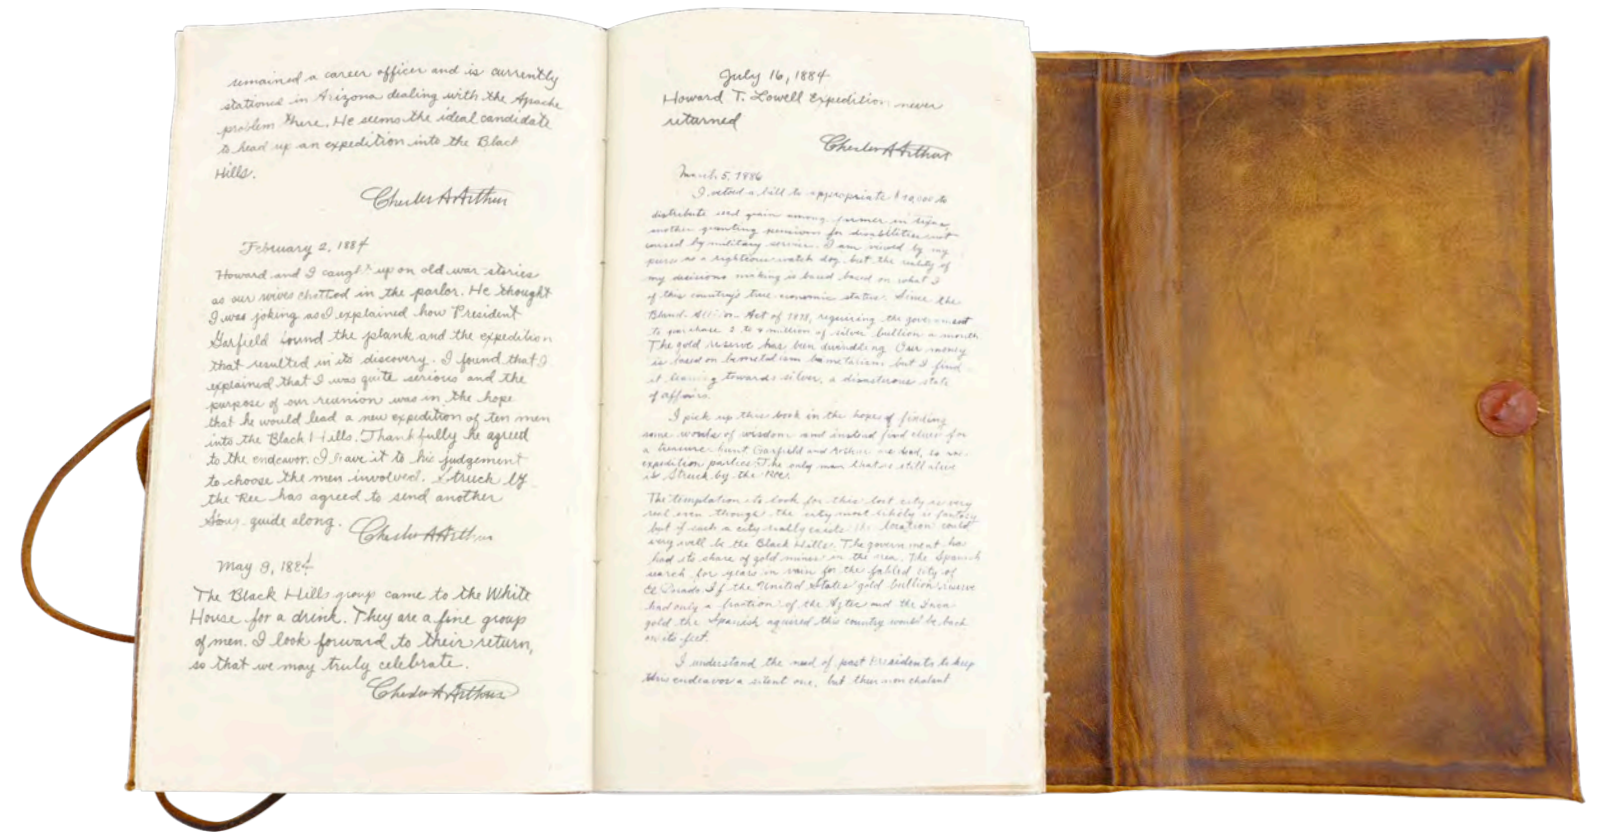 remained a career officer and is currently
stationed in Arizona dealing with the Apache
problem there. He seems the ideal candidate
to head up an expedition into the Black
Hills.
Chester A Arthur
February 2, 1884
Howard and I caught up on old war stories
as our wives chattod in the parlor. He thought
I was joking as I explained how President
Garfield found the plank and the expedition
that resulted in its discovery. I found that I
explained that I was quite serious and the
purpose of our reunion was in the hope
that he would lead a new expedition of ten men
into the Black Hills. Thankfully he agreed
to the endeavor. I leave it to his judgement
to choose the men involved. Struck by
the Ree has agreed to send another
Sioux guide along.
Chester A Arthur
May 9, 1884
The Black Hills group came to the White
House for a drink. They are a fine group
of men. I look forward to their return,
so that we may truly celebrate.
Chester A Arthur
July 16, 1884
Howard T. Lowell Expedition never
returned
Chester A Arthur
March 5, 1886
I vetoed a bill to appropriate $10,000 to
distribute seed grain among farmer in Texas
another granting pensions for disabilities not
caused by military service. I am viewed by my
as a righteous watch dog, but the reality of
my decisions making is based based on what I
of this country's true economic status. Since the
Bland-Allison Act of 1878, requiring the government
to purchase 2 to 4 million of silver bullion a month
The gold reserve has been dwindling. Our money
is based on bimetalism but I find
it leaning towards silver, a disasterous state
of affairs.
I pick up this book in the hopes of finding
some words of wisdom and instead find clues for
a treasure hunt Garfield and Arthur are dead, so are
expedition parties. The only man that is still alive
is Struck by the Ree.
The temptation to look for this lost city is very
real even though the city most likely is fantasy
but if such a city really exists the location could
very well be the Black Hills. The government has
had its share of gold mines in the area. The Spanish
search for years in vain for the fabled city of
El Dorado. If the United States gold bullion reserve
had only a fraction of the Aztec and the Inca
gold the Spanish aquired this country would be back
on its feet.
I understand the need of past Presidents to keep
this endeavor a silent one, but their nonchalant